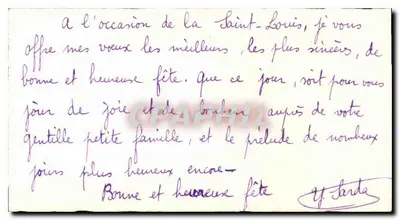 A l'occasion de la Saint-Louis, je vous
offre mes vœux les meilleurs, les plus sincères, de
bonne et heureuse fête. Que ce jour, soit pour vous
jour de joie et de bonheur auprès de votre
gentille petite famille, et le prélude de nombreux
jours plus heureux encore —
Bonne et heureuse fête
Y. Sarda